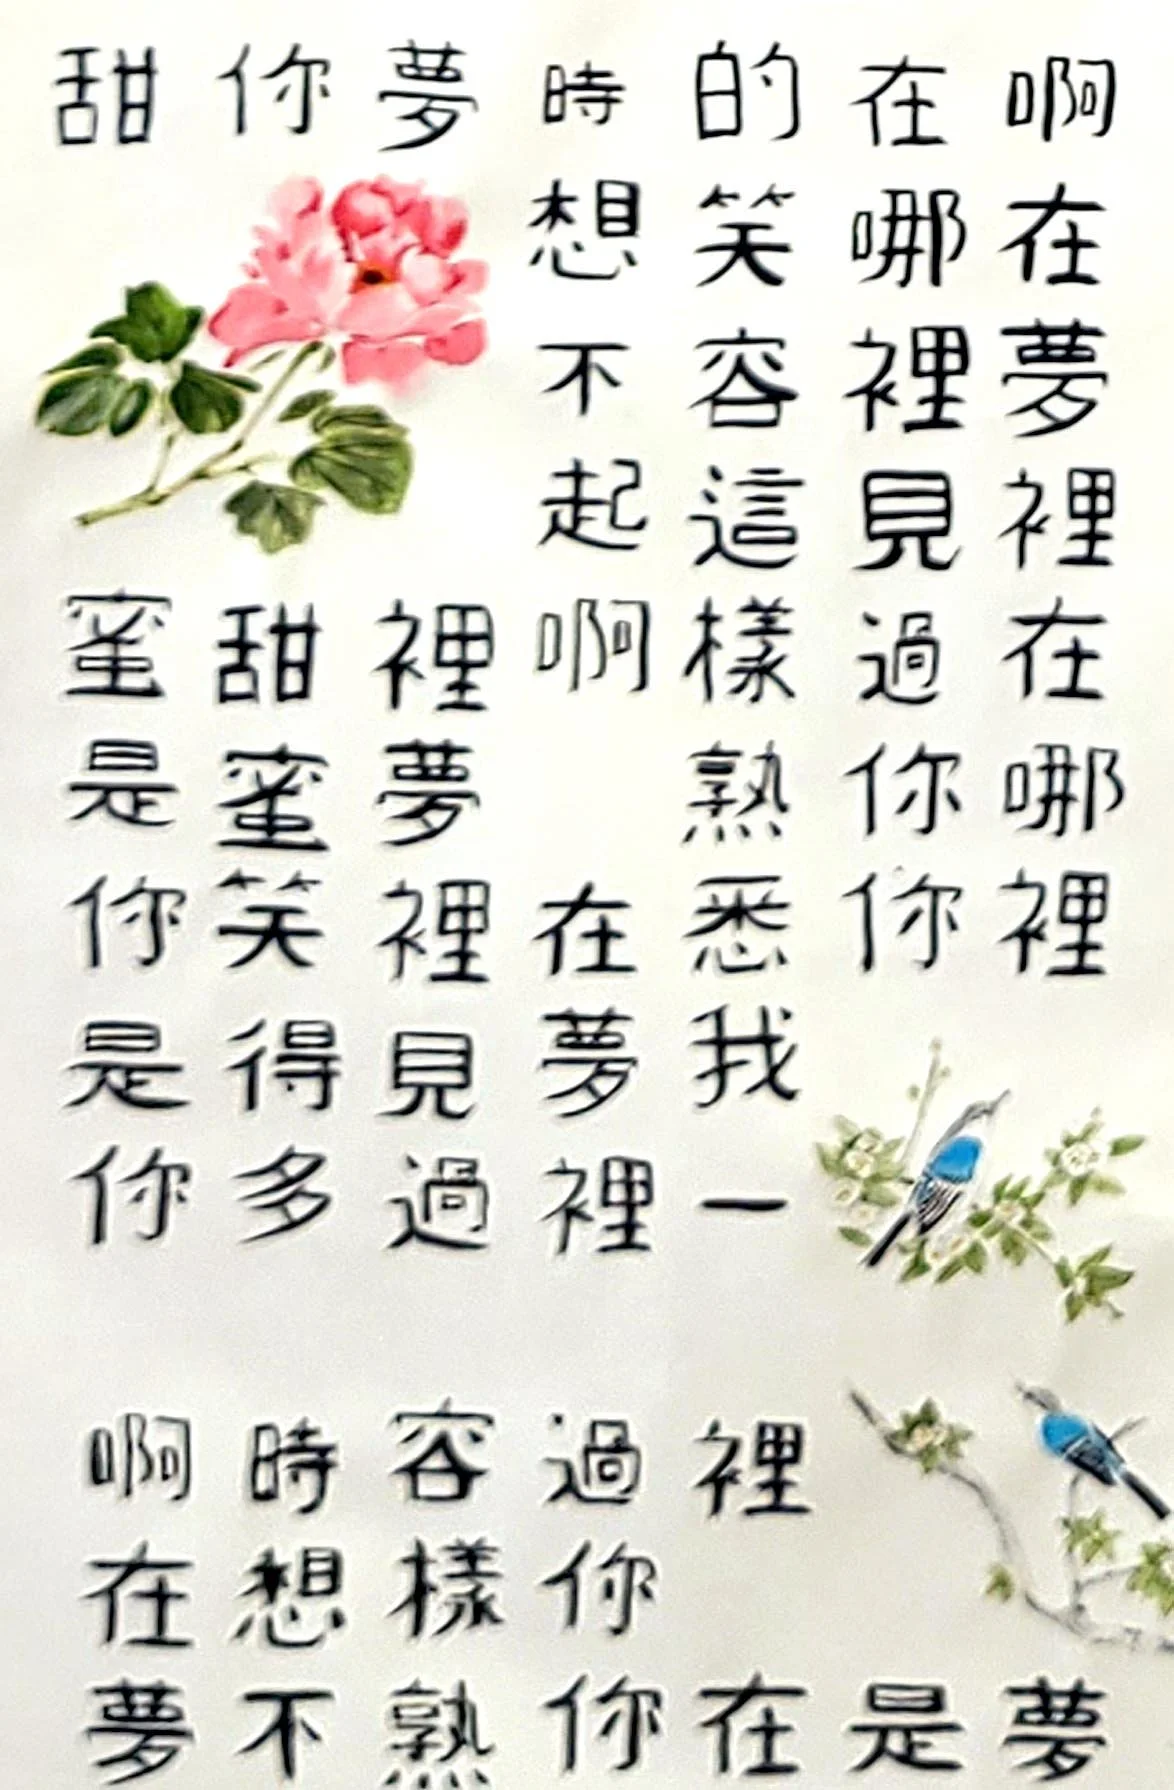 啊在夢裡在哪裡夢
在哪裡見過你你是
的笑容這樣熟悉我一裡在
時想不起啊在夢裡過你你
夢裡夢裡見過容樣熟
你甜蜜笑得多時想不
甜蜜是你是你啊在夢